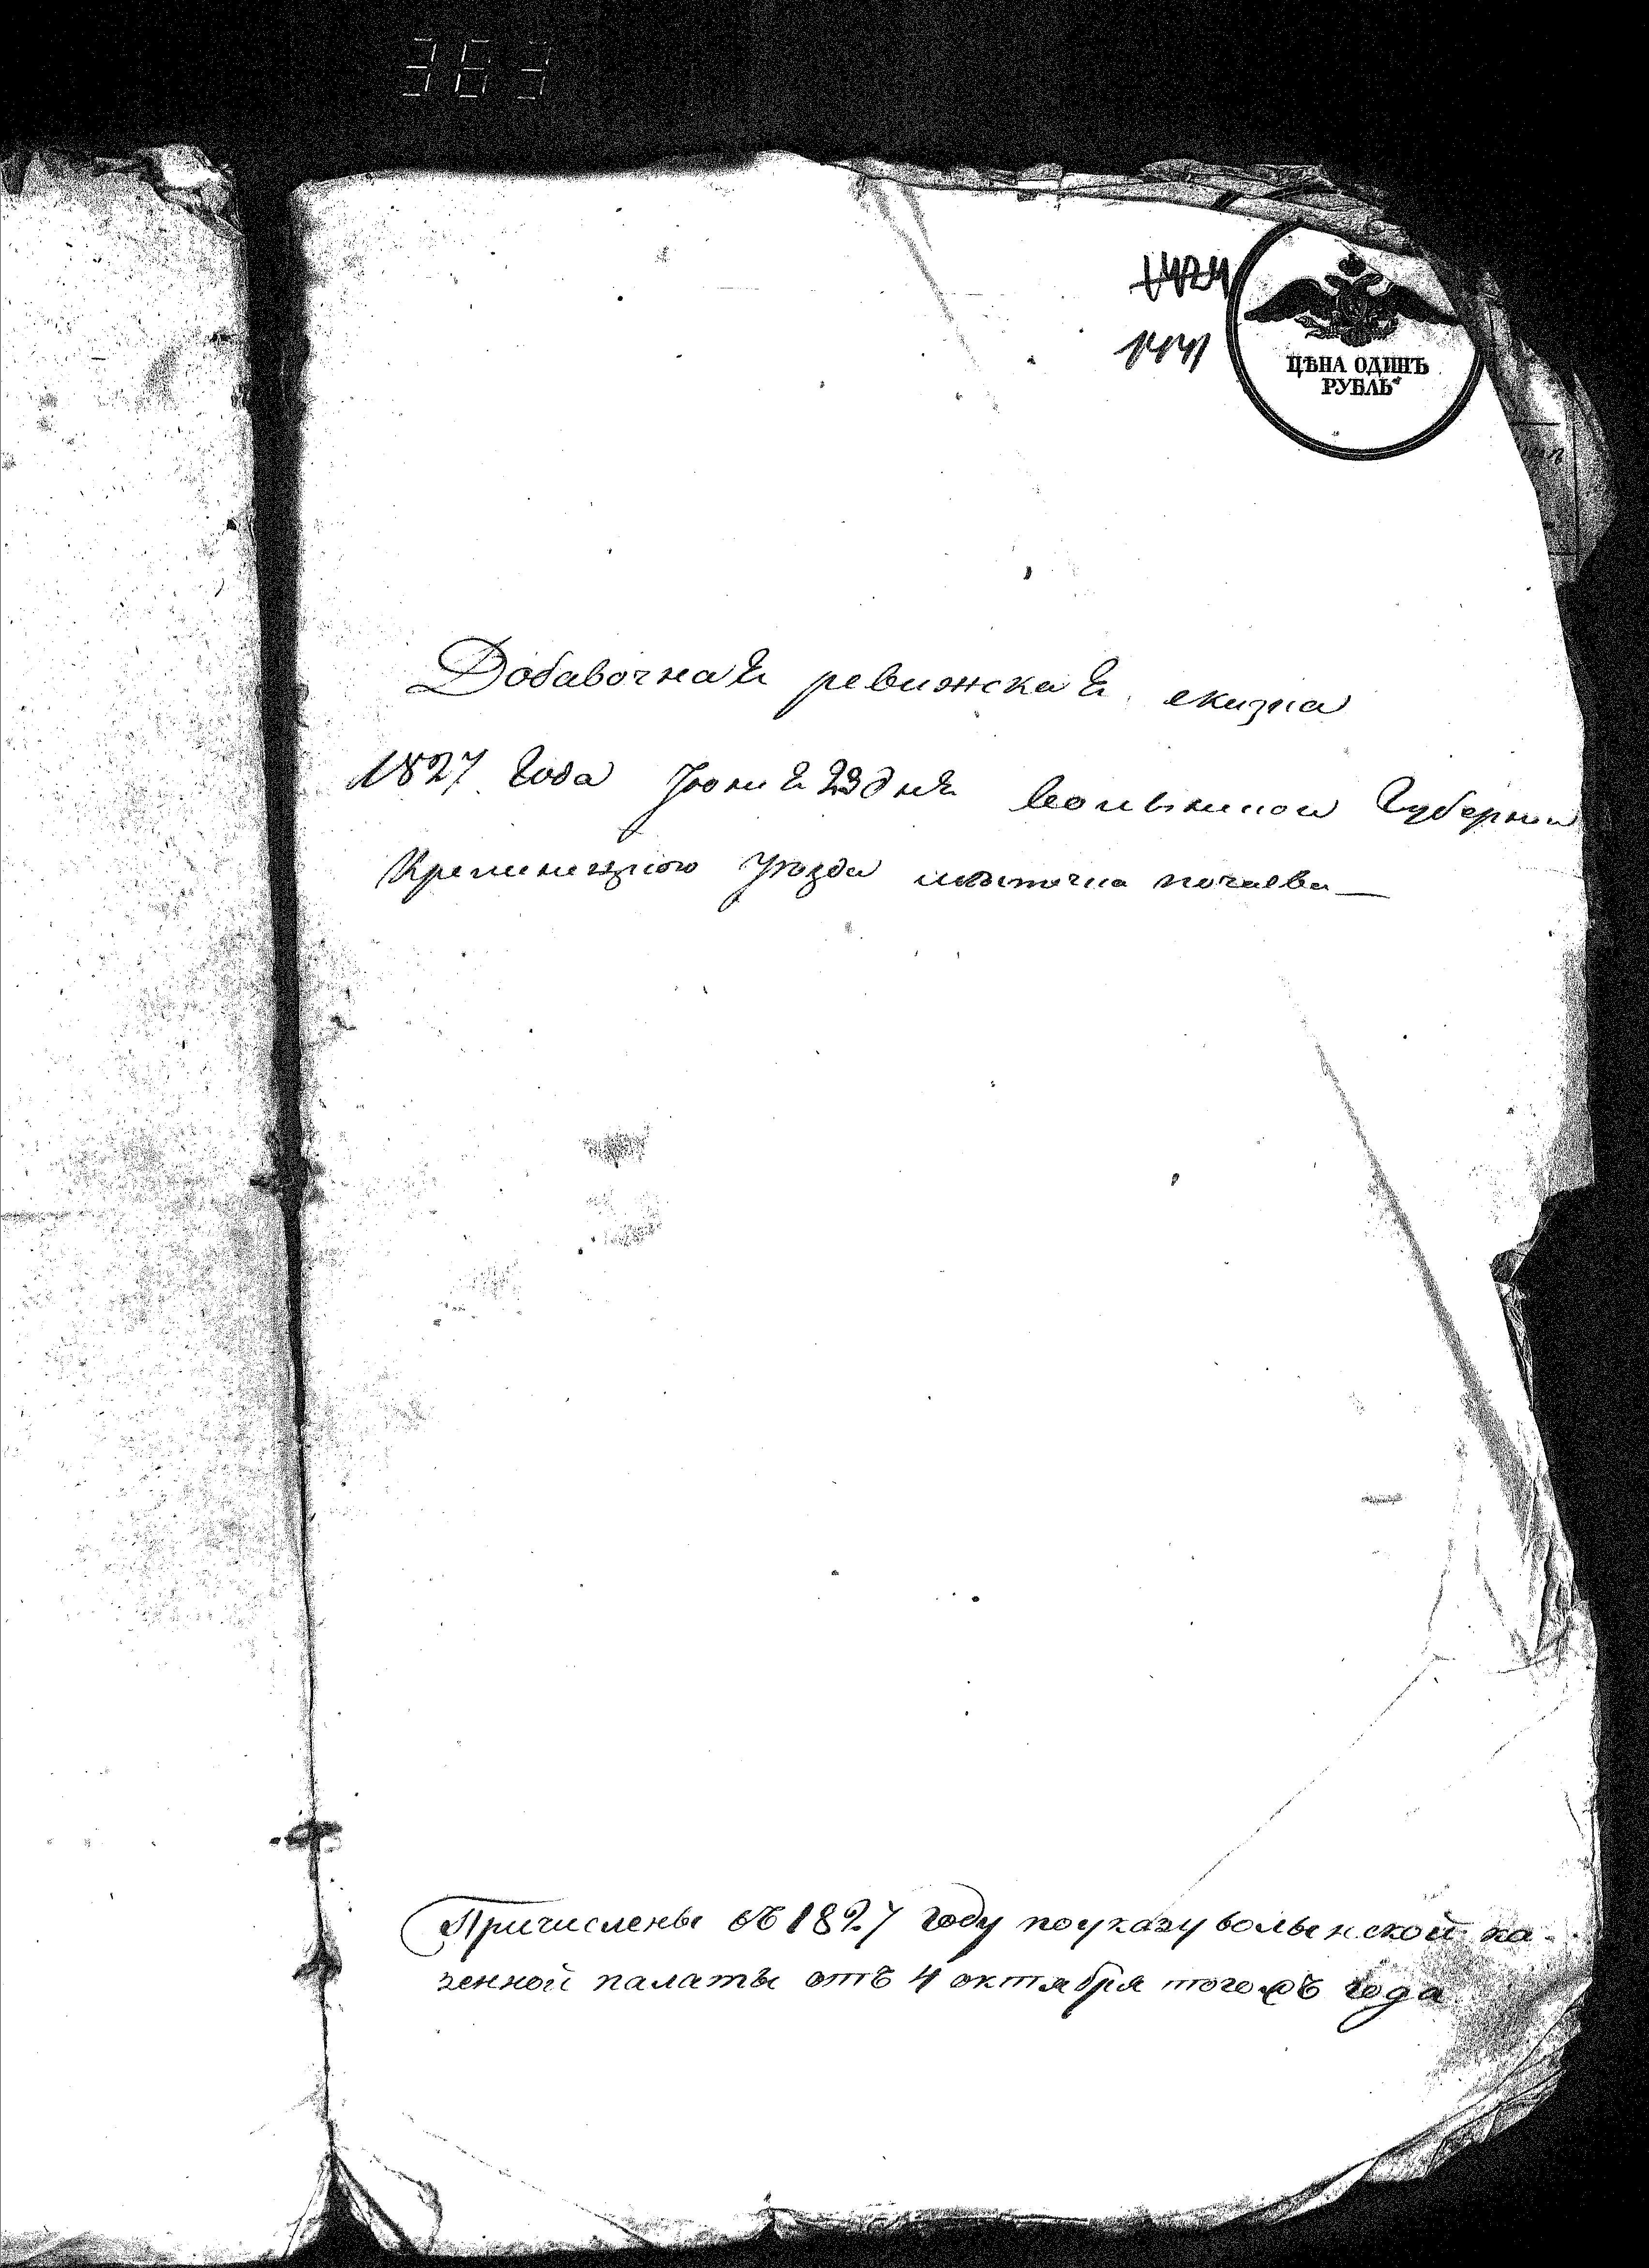 363
1424
1441
ЦѢНА ОДИНЪ
РУБЛЬ
Добавочная ревижская скизка
1827 Года Июня 23 дня Волынской Губернии
Кременецкого Уезда местечка почаева
Причислены въ 1827 году по указу волынской ка-
зенной палаты отъ 4 октября того жъ года